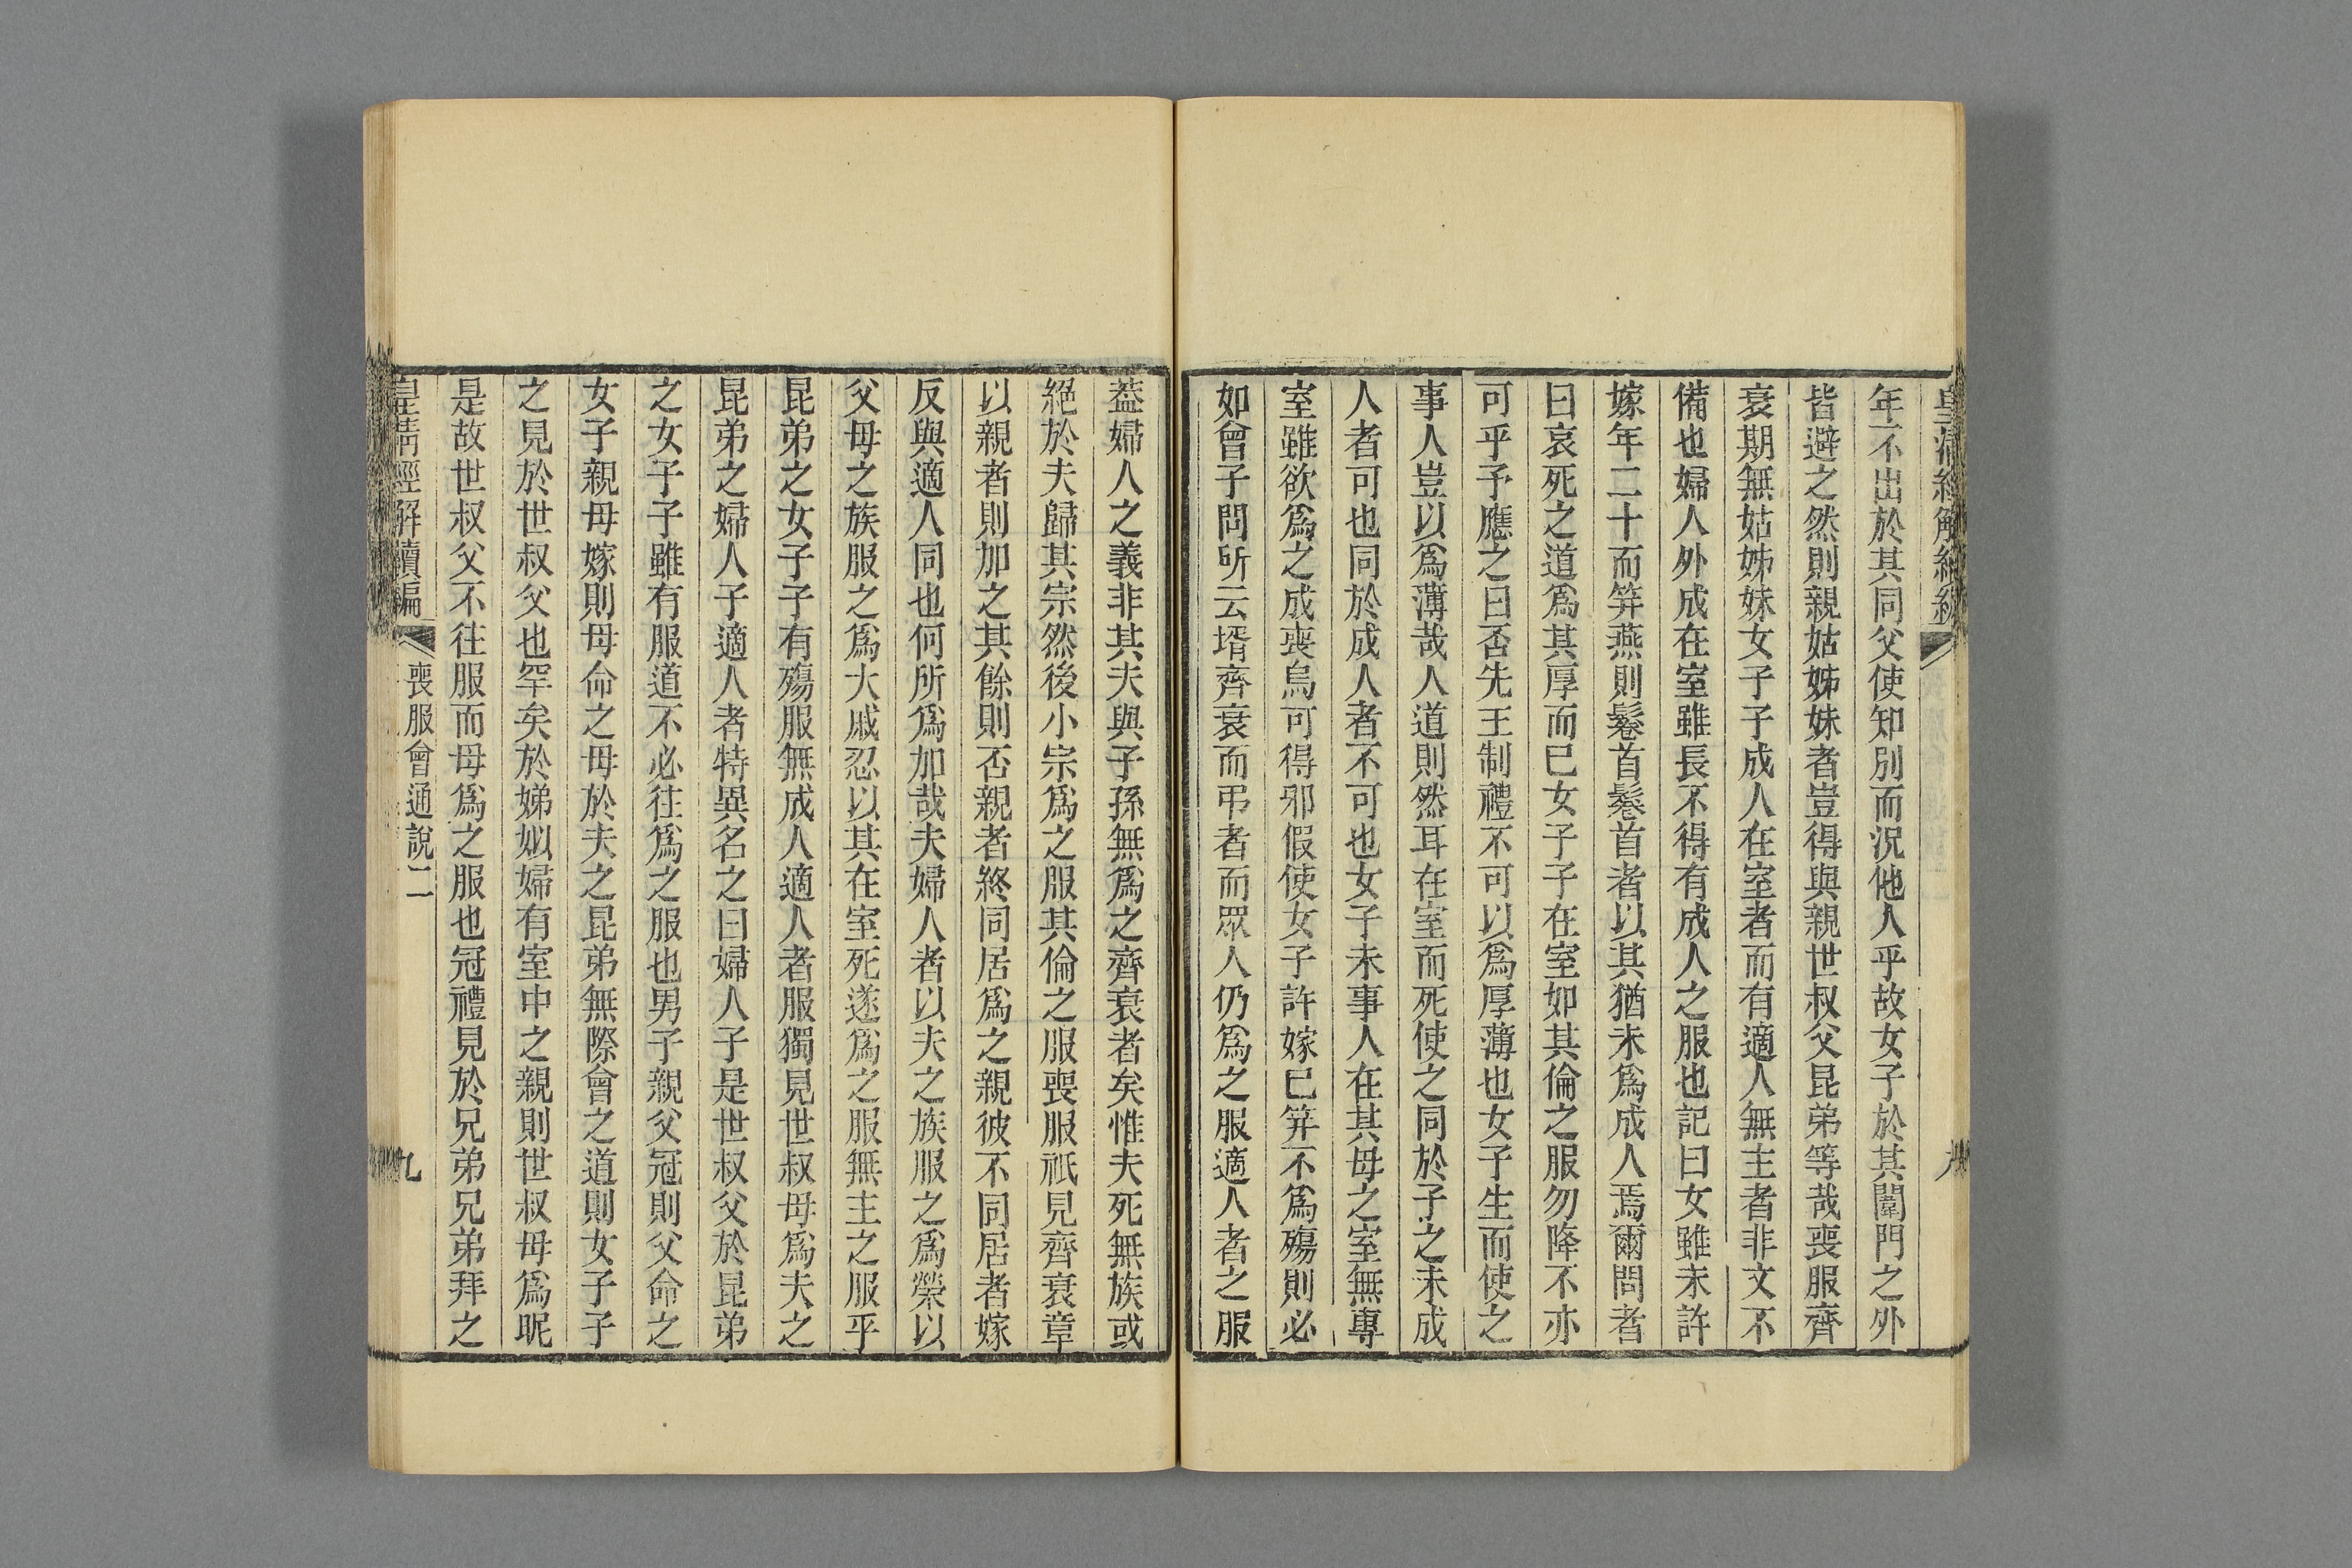 年不出於其同父使知別而況他人乎故女子於其闈門之外
皆避之然則親姑姊妹者豈得與親世叔父昆弟等哉喪服齊
衰期無姑姊妹女子子成人在室者而有適人無主者非文不
備也婦人外成在室雖長不得有成人之服也記曰女雖未許
嫁年二十而笄燕則鬈首鬈首者以其猶未爲成人焉爾問者
曰哀死之道爲其厚而已女子子在室如其倫之服勿降不亦
可乎予應之曰否先王制禮不可以爲厚薄也女子生而使之
事人豈以爲薄哉人道則然耳在室而死使之同於子之未成
人者可也同於成人者不可也女子未事人在其母之室無專
室雖欲爲之成喪烏可得邪假使女子許嫁已笄不爲殤則必
如曾子問所云壻齊衰而弔者而眾人仍爲之服適人者之服
蓋婦人之義非其夫與子孫無爲之齊衰者矣惟夫死無族或
絕於夫歸其宗然後小宗爲之服其倫之服喪服祇見齊衰章
以親者則加之其餘則否親者終同居爲之親彼不同居者嫁
反與適人同也何所爲加哉夫婦人者以夫之族服之爲榮以
父母之族服之爲大戚忍以其在室死遂爲之服無主之服乎
昆弟之女子子有殤服無成人適人者服獨見世叔母爲夫之
昆弟之婦人子適人者特異名之曰婦人子是世叔父於昆弟
之女子子雖有服道不必往爲之服也男子親父冠則父命之
女子親母嫁則母命之母於夫之昆弟無際會之道則女子子
之見於世叔父也罕矣於娣姒婦有室中之親則世叔母爲昵
是故世叔父不往服而母爲之服也冠禮見於兄弟兄弟拜之
皇清經解續編
喪服會通說二
九